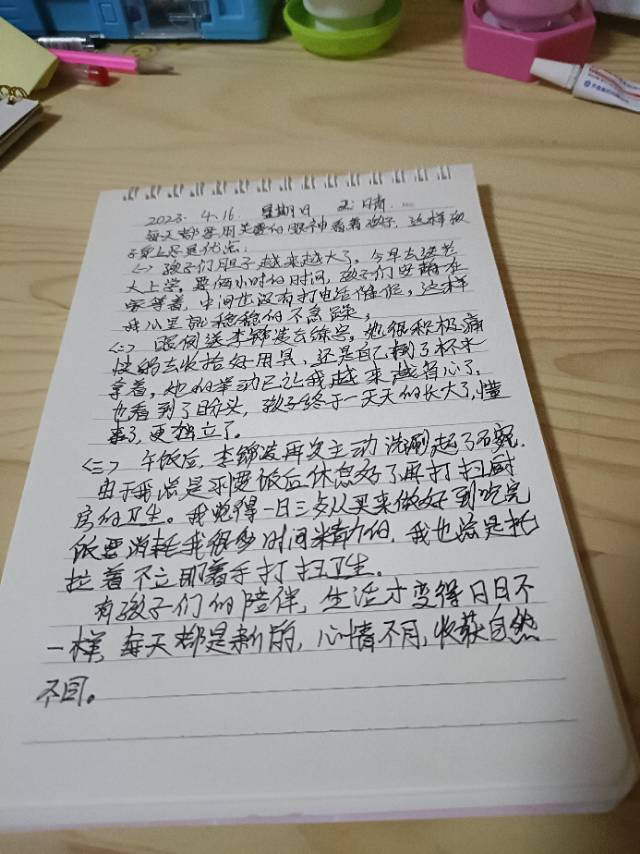 2023. 4.16. 星期日 晴
每天都要用关爱的眼神看着孩子,这样孩
子身上尽是优点。
<一> 孩子们胆子越来越大了。今早去送老
大上学。要俩小时的时间,孩子们安静在
家等着,中间也没有打电话催促,这样
我心里就稳稳的不急躁。
<二> 跟倒送李锦凌去练字。她很积极痛
快的去收拾好用具,还是自己拿了杯水
拿着,她的举动已让我越来越省心了,
也看到了盼头,孩子终于一天天的长大了,懂
事了,更独立了。
<三> 午饭后,李锦凌再次主动洗涮起了碗。
由于我总是习惯饭后休息好了再打扫厨
房的卫生。我觉得一日三岁从买来做好到吃完
饭要消耗我很多时间精力的,我也总是拖
拉着不立即着手打扫卫生。
有孩子们的陪伴,生活才变得日日不
一样,每天都是新的,心情不同,收获自然
不同。